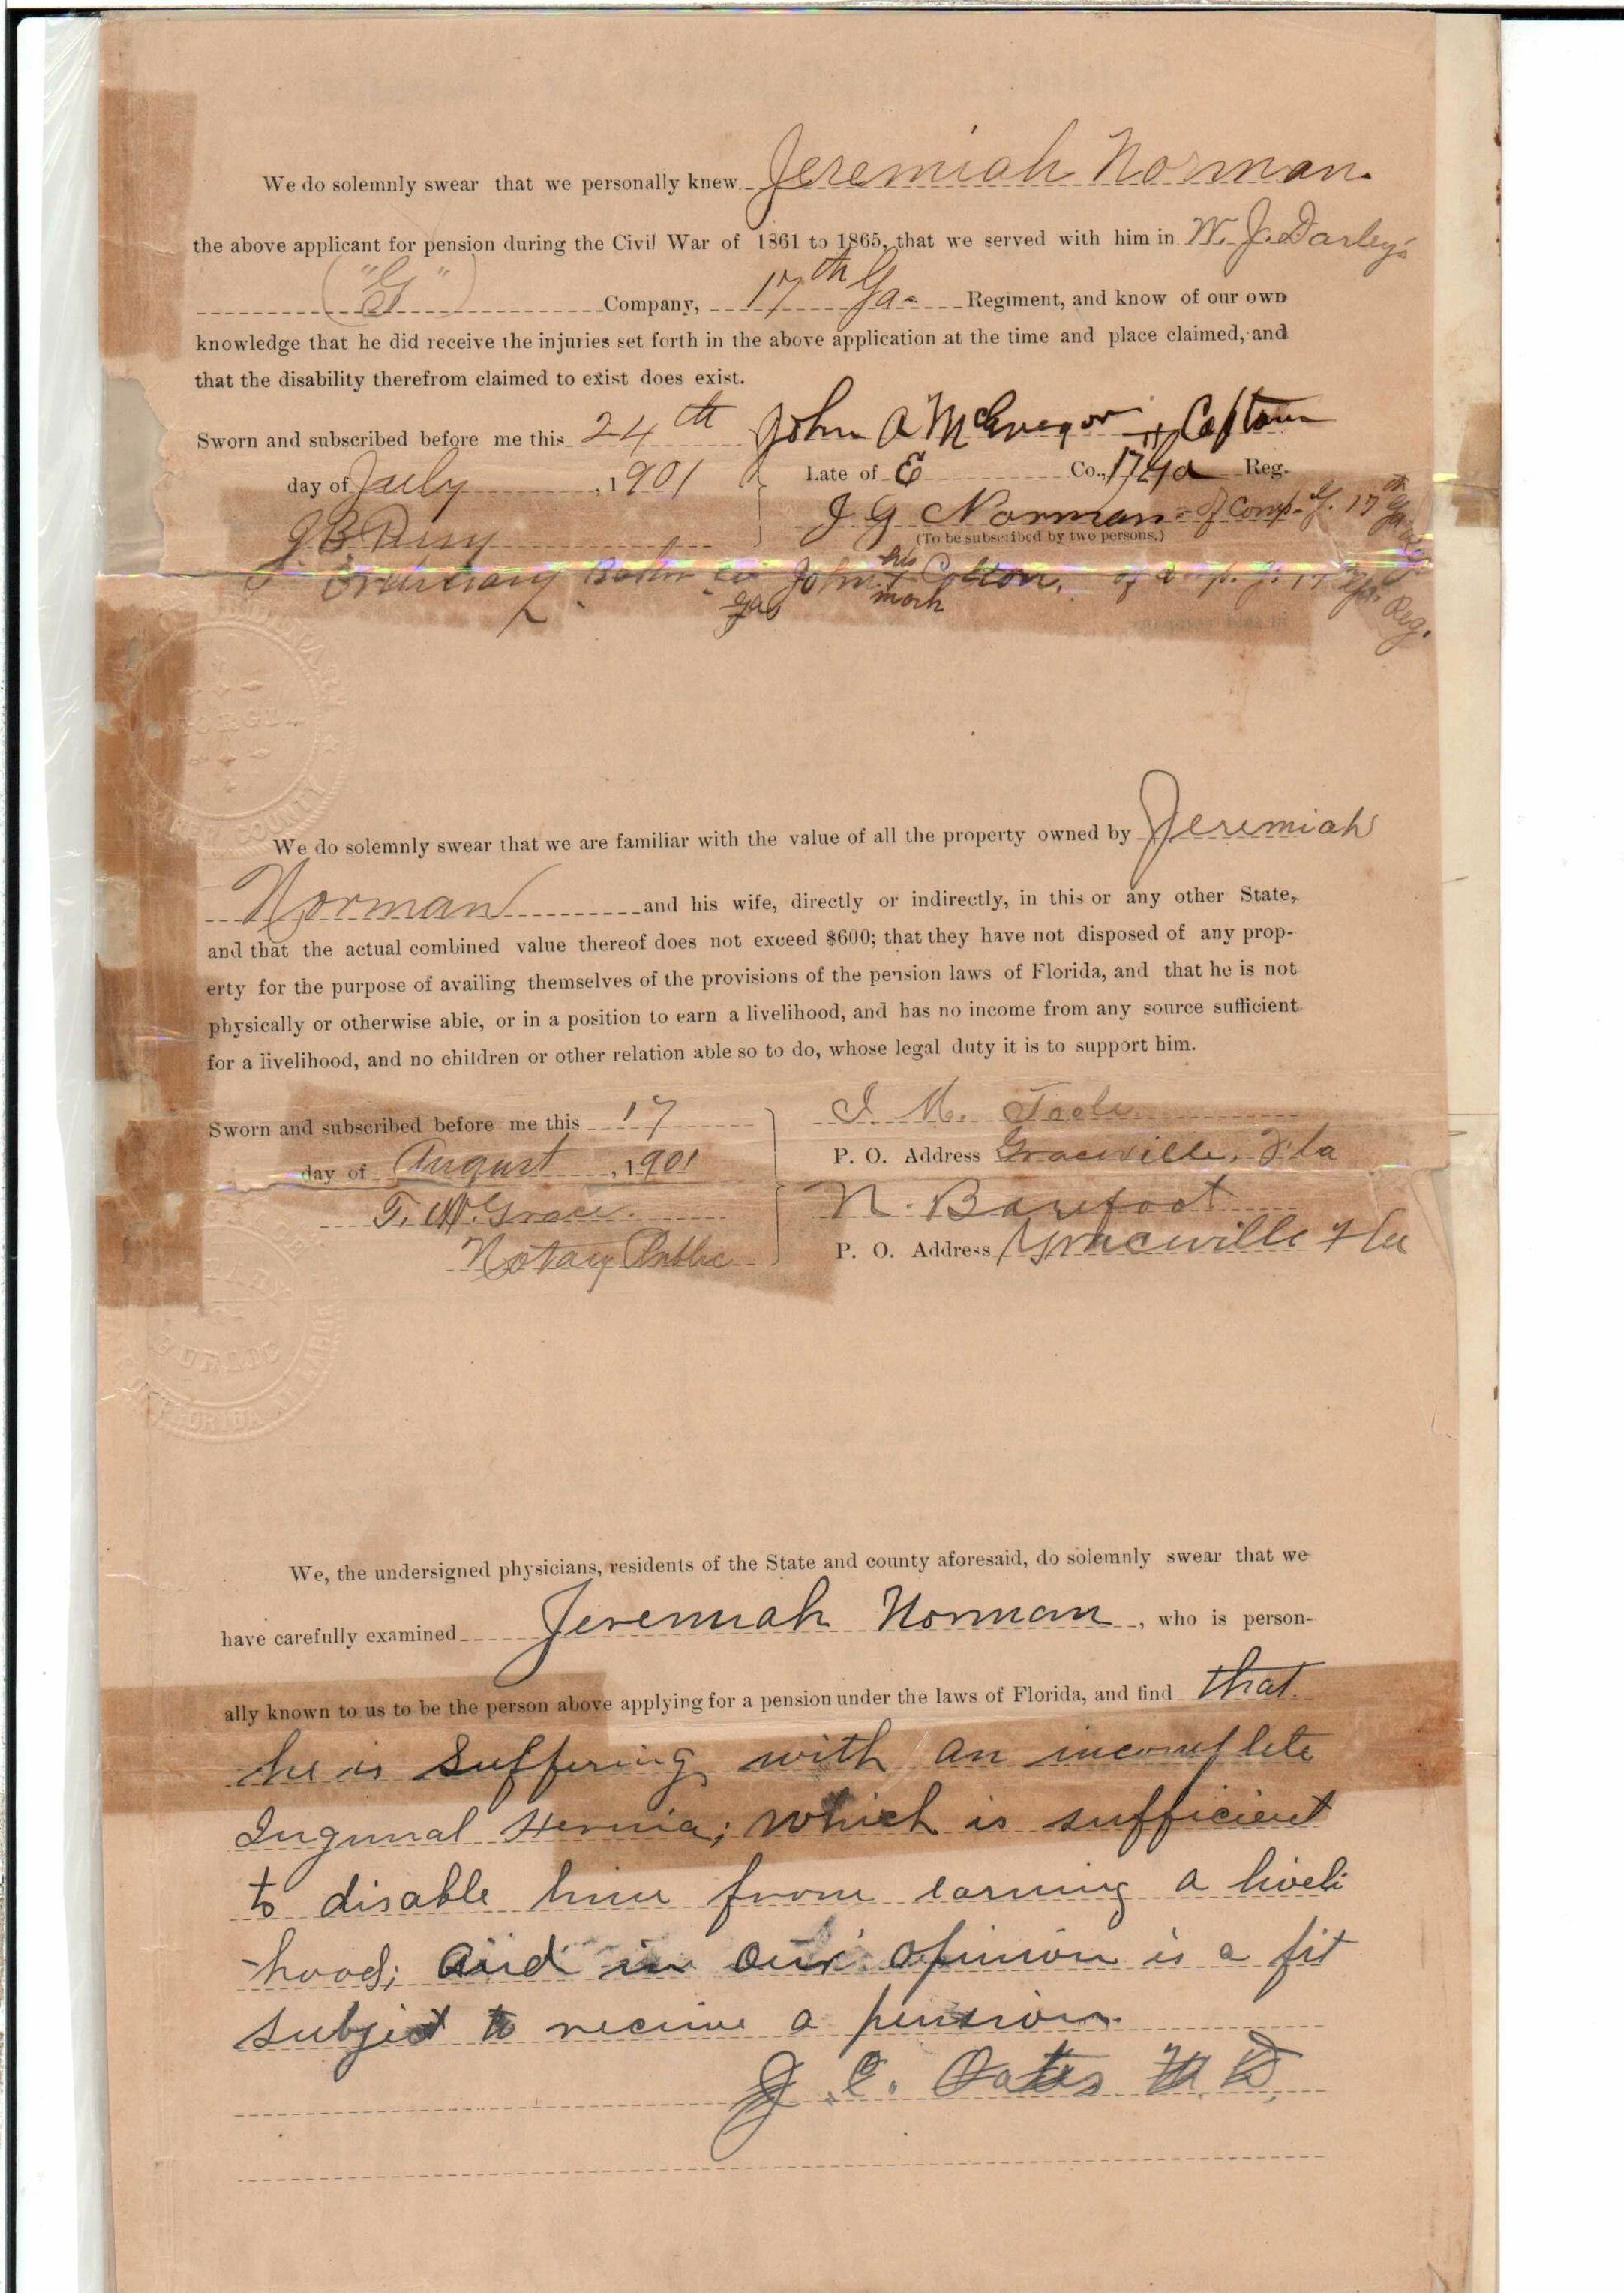 We do solemnly swear that we personally knew Jeremiah Norman.
the above applicant for pension during the Civil War of 1861 to 1865, that we served with him in W. J. Darley's
("G") Company, 17th Ga. Regiment, and know of our own
knowledge that he did receive the injuries set forth in the above application at the time and place claimed, and
that the disability therefrom claimed to exist does exist.
Sworn and subscribed before me this 24th John A McGregor Captain
day of July, 1901 Late of E Co., 17 Ga Reg.
J G Norman of Comp. G. 17th Ga Reg.
(To be subscribed by two persons.)
Ordinary Ga John his mark Colton, of Comp. G. 17 Ga. Reg.
COUNTY
We do solemnly swear that we are familiar with the value of all the property owned by Jeremiah
Norman and his wife, directly or indirectly, in this or any other State,
and that the actual combined value thereof does not exceed $600; that they have not disposed of any prop-
erty for the purpose of availing themselves of the provisions of the pension laws of Florida, and that he is not
physically or otherwise able, or in a position to earn a livelihood, and has no income from any source sufficient
for a livelihood, and no children or other relation able so to do, whose legal duty it is to support him.
Sworn and subscribed before me this 17 I. M. Toole
day of August, 1901 P. O. Address Graceville, Fla
T. W. Grace. N. Barefoot
Notary Public P. O. Address Graceville Fla
We, the undersigned physicians, residents of the State and county aforesaid, do solemnly swear that we
have carefully examined Jeremiah Norman, who is person-
ally known to us to be the person above applying for a pension under the laws of Florida, and find that
he is suffering with an incomplete
Ingunal Hernia; which is sufficient
to disable him from earning a liveli
-hood; and in our opinion is a fit
subject to receive a pension.
J. C. Oates M.D.